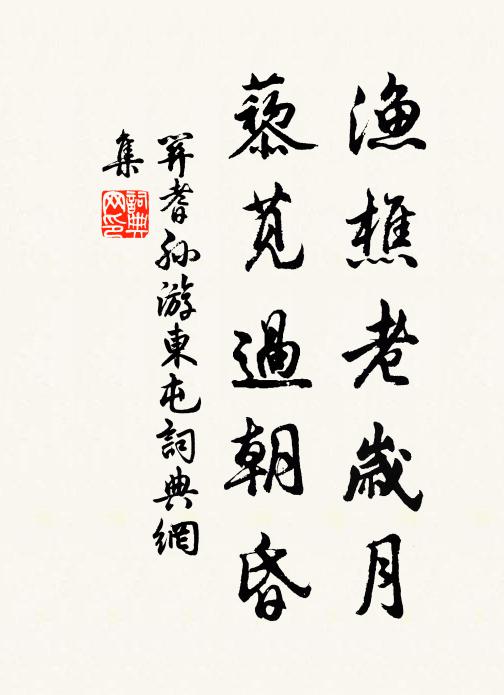 漁樵老歲月
藜莧過朝昏
關耆孫游東屯詞典網
集
詞典
网印